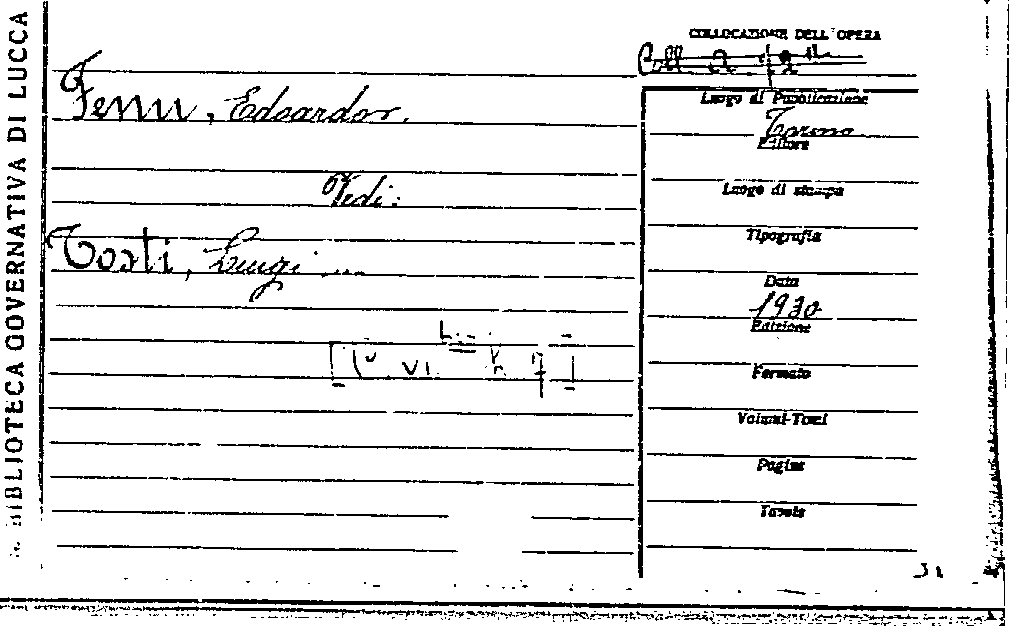 BIBLIOTECA GOVERNATIVA DI LUCCA
COLLOCAZIONE DELL'OPERA
Coll.
Fenu, Edoardo.
Luogo di Pubblicazione
Torino
Editore
Vedi:
Luogo di stampa
Tosti, Luigi ...
Tipografia
Data
1930
Edizione
Formato
Volumi-Tomi
Pagine
Tavole